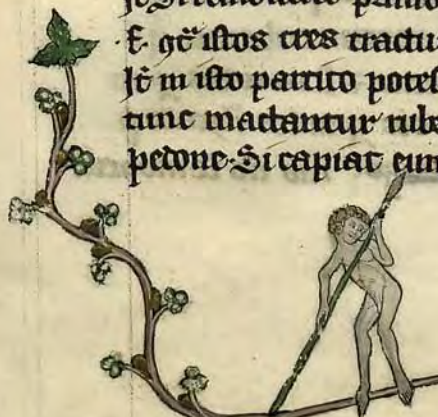 E. qt̄ istos tres tractu
It̄ in isto partito potes
tunc mactantur rube
pedone. Si capiat eum